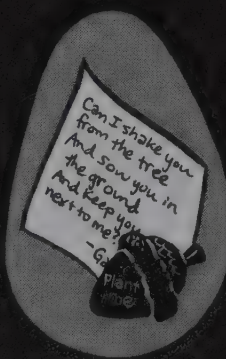 Can I shake you
from the tree
And sow you in
the ground
And keep you
next to me?
Plant